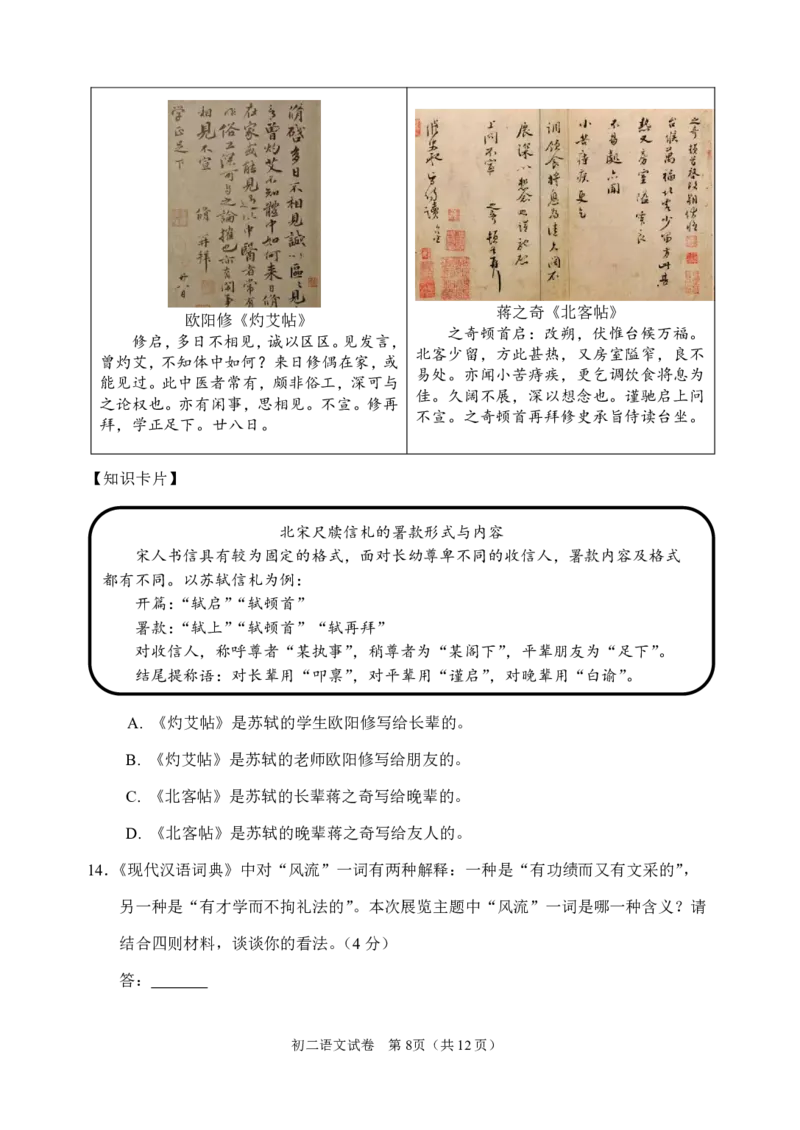 欧阳修《灼艾帖》
修启，多日不相见，诚以区区。见发言，
曾灼艾，不知体中如何？来日修偶在家，或
能见过。此中医者常有，颇非俗工，深可与
之论权也。亦有闲事，思相见。不宣。修再
拜，学正足下。廿八日。
蒋之奇《北客帖》
之奇顿首启：改朔，伏惟台候万福。
北客少留，方此甚热，又房室隘窄，良不
易处。亦闻小苦痔疾，更乞调饮食将息为
佳。久阔不展，深以想念也。谨驰启上问
不宣。之奇顿首再拜修史承旨侍读台坐。
【知识卡片】
北宋尺牍信札的署款形式与内容
宋人书信具有较为固定的格式，面对长幼尊卑不同的收信人，署款内容及格式
都有不同。以苏轼信札为例：
开篇：“轼启”“轼顿首”
署款：“轼上”“轼顿首” “轼再拜”
对收信人，称呼尊者“某执事”，稍尊者为“某阁下”，平辈朋友为“足下”。
结尾提称语：对长辈用“叩禀”，对平辈用“谨启”，对晚辈用“白谕”。
A. 《灼艾帖》是苏轼的学生欧阳修写给长辈的。
B. 《灼艾帖》是苏轼的老师欧阳修写给朋友的。
C. 《北客帖》是苏轼的长辈蒋之奇写给晚辈的。
D. 《北客帖》是苏轼的晚辈蒋之奇写给友人的。
14.《现代汉语词典》中对“风流”一词有两种解释：一种是“有功绩而又有文采的”，
另一种是“有才学而不拘礼法的”。本次展览主题中“风流”一词是哪一种含义？请
结合四则材料，谈谈你的看法。（4 分）
答：
初二语文试卷 第 8页（共 12 页）